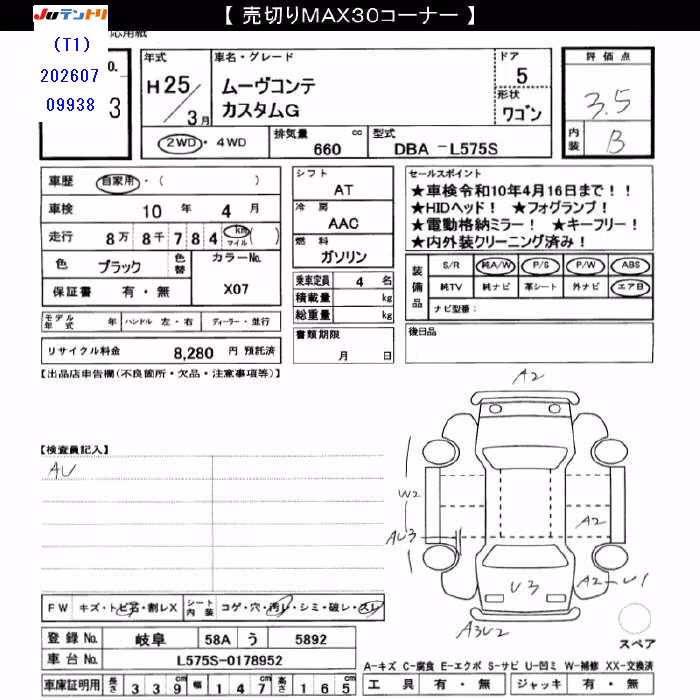 【 売切りMAX30コーナー 】
JUテントリ
応用紙
(T1)
202607
09938
o.
3
年式
H25/3月
車名・グレード
ムーヴコンテ
カスタムG
ドア
5
形状
ワゴン
評価点
3.5
内装
B
2WD・4WD
排気量
660
cc
型式
DBA -L575S
車歴
自家用・( )
車検
10 年 4 月
走行
8万 8千 7 8 4 km マイル ( )
色
ブラック
色替
カラーNo.
X07
保証書
有・無
シフト
AT
冷房
AAC
燃料
ガソリン
乗車定員
4 名
積載量
kg
総重量
kg
セールスポイント
★車検令和10年4月16日まで!!
★HIDヘッド! ★フォグランプ!
★電動格納ミラー! ★キーフリー!
★内外装クリーニング済み!
装備品
S/R
純A/W
P/S
P/W
ABS
純TV
純ナビ
革シート
外ナビ
エアB
ナビ型番:
モデル年式
年
ハンドル
左・右
ディーラー・並行
書類期限
月 日
後日品
リサイクル料金
8,280 円 預託済
【出品店申告欄(不良箇所・欠品・注意事項等)】
【検査員記入】
AU
A2
W2
AU3
A2
U3
A2
U1
A3U2
スペア
FW
キズ・トビ石・割レX
シート内装
コゲ・穴・汚レ・シミ・破レ・スレ
登録No.
岐阜
58A
う
5892
車台No.
L575S-0178952
車庫証明用
長さ
3 3 9
cm
幅
1 4 7
cm
高さ
1 6 5
cm
A-キズ C-腐食 E-エクボ S-サビ U-凹ミ W-補修 XX-交換済
工具
有・無
ジャッキ
有・無